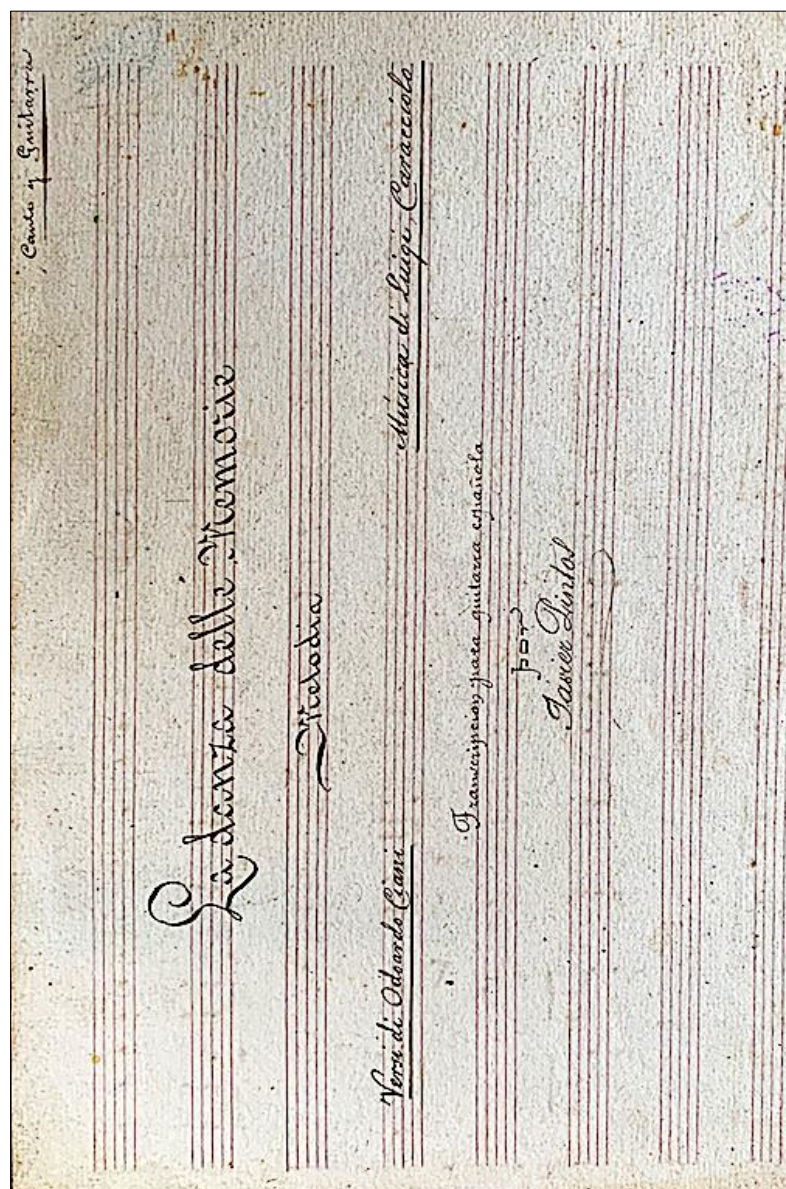 Canto y Guitarra
La danza delle Memorie
Melodia
Versi di Odoardo Ciani Música di Luigi Caracciolo
Transcripcion para guitarra española
por
Javier Pintos